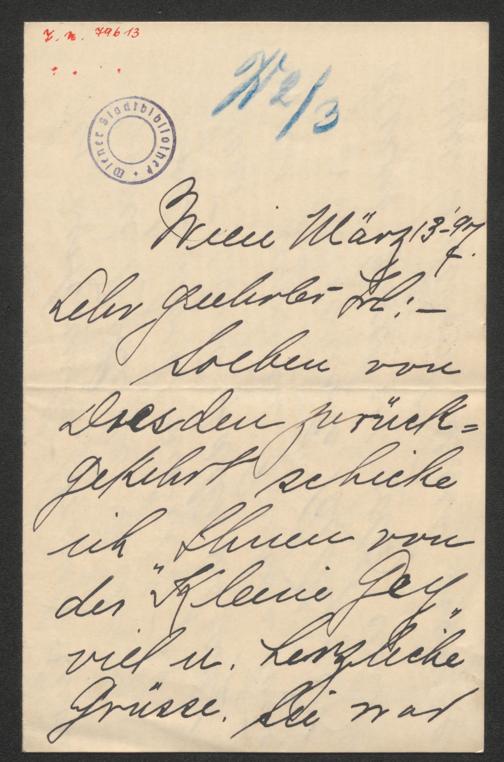 J. N. 79613
Wiener Stadtbibliothek
2/3
Wien März 13-97
Sehr geehrter Frl:-
Soeben von
Dresden zurück=
gekehrt schicke
ich Ihnen von
der "Kleine Gey"
viel u. herzliche
Grüsse. Sie war